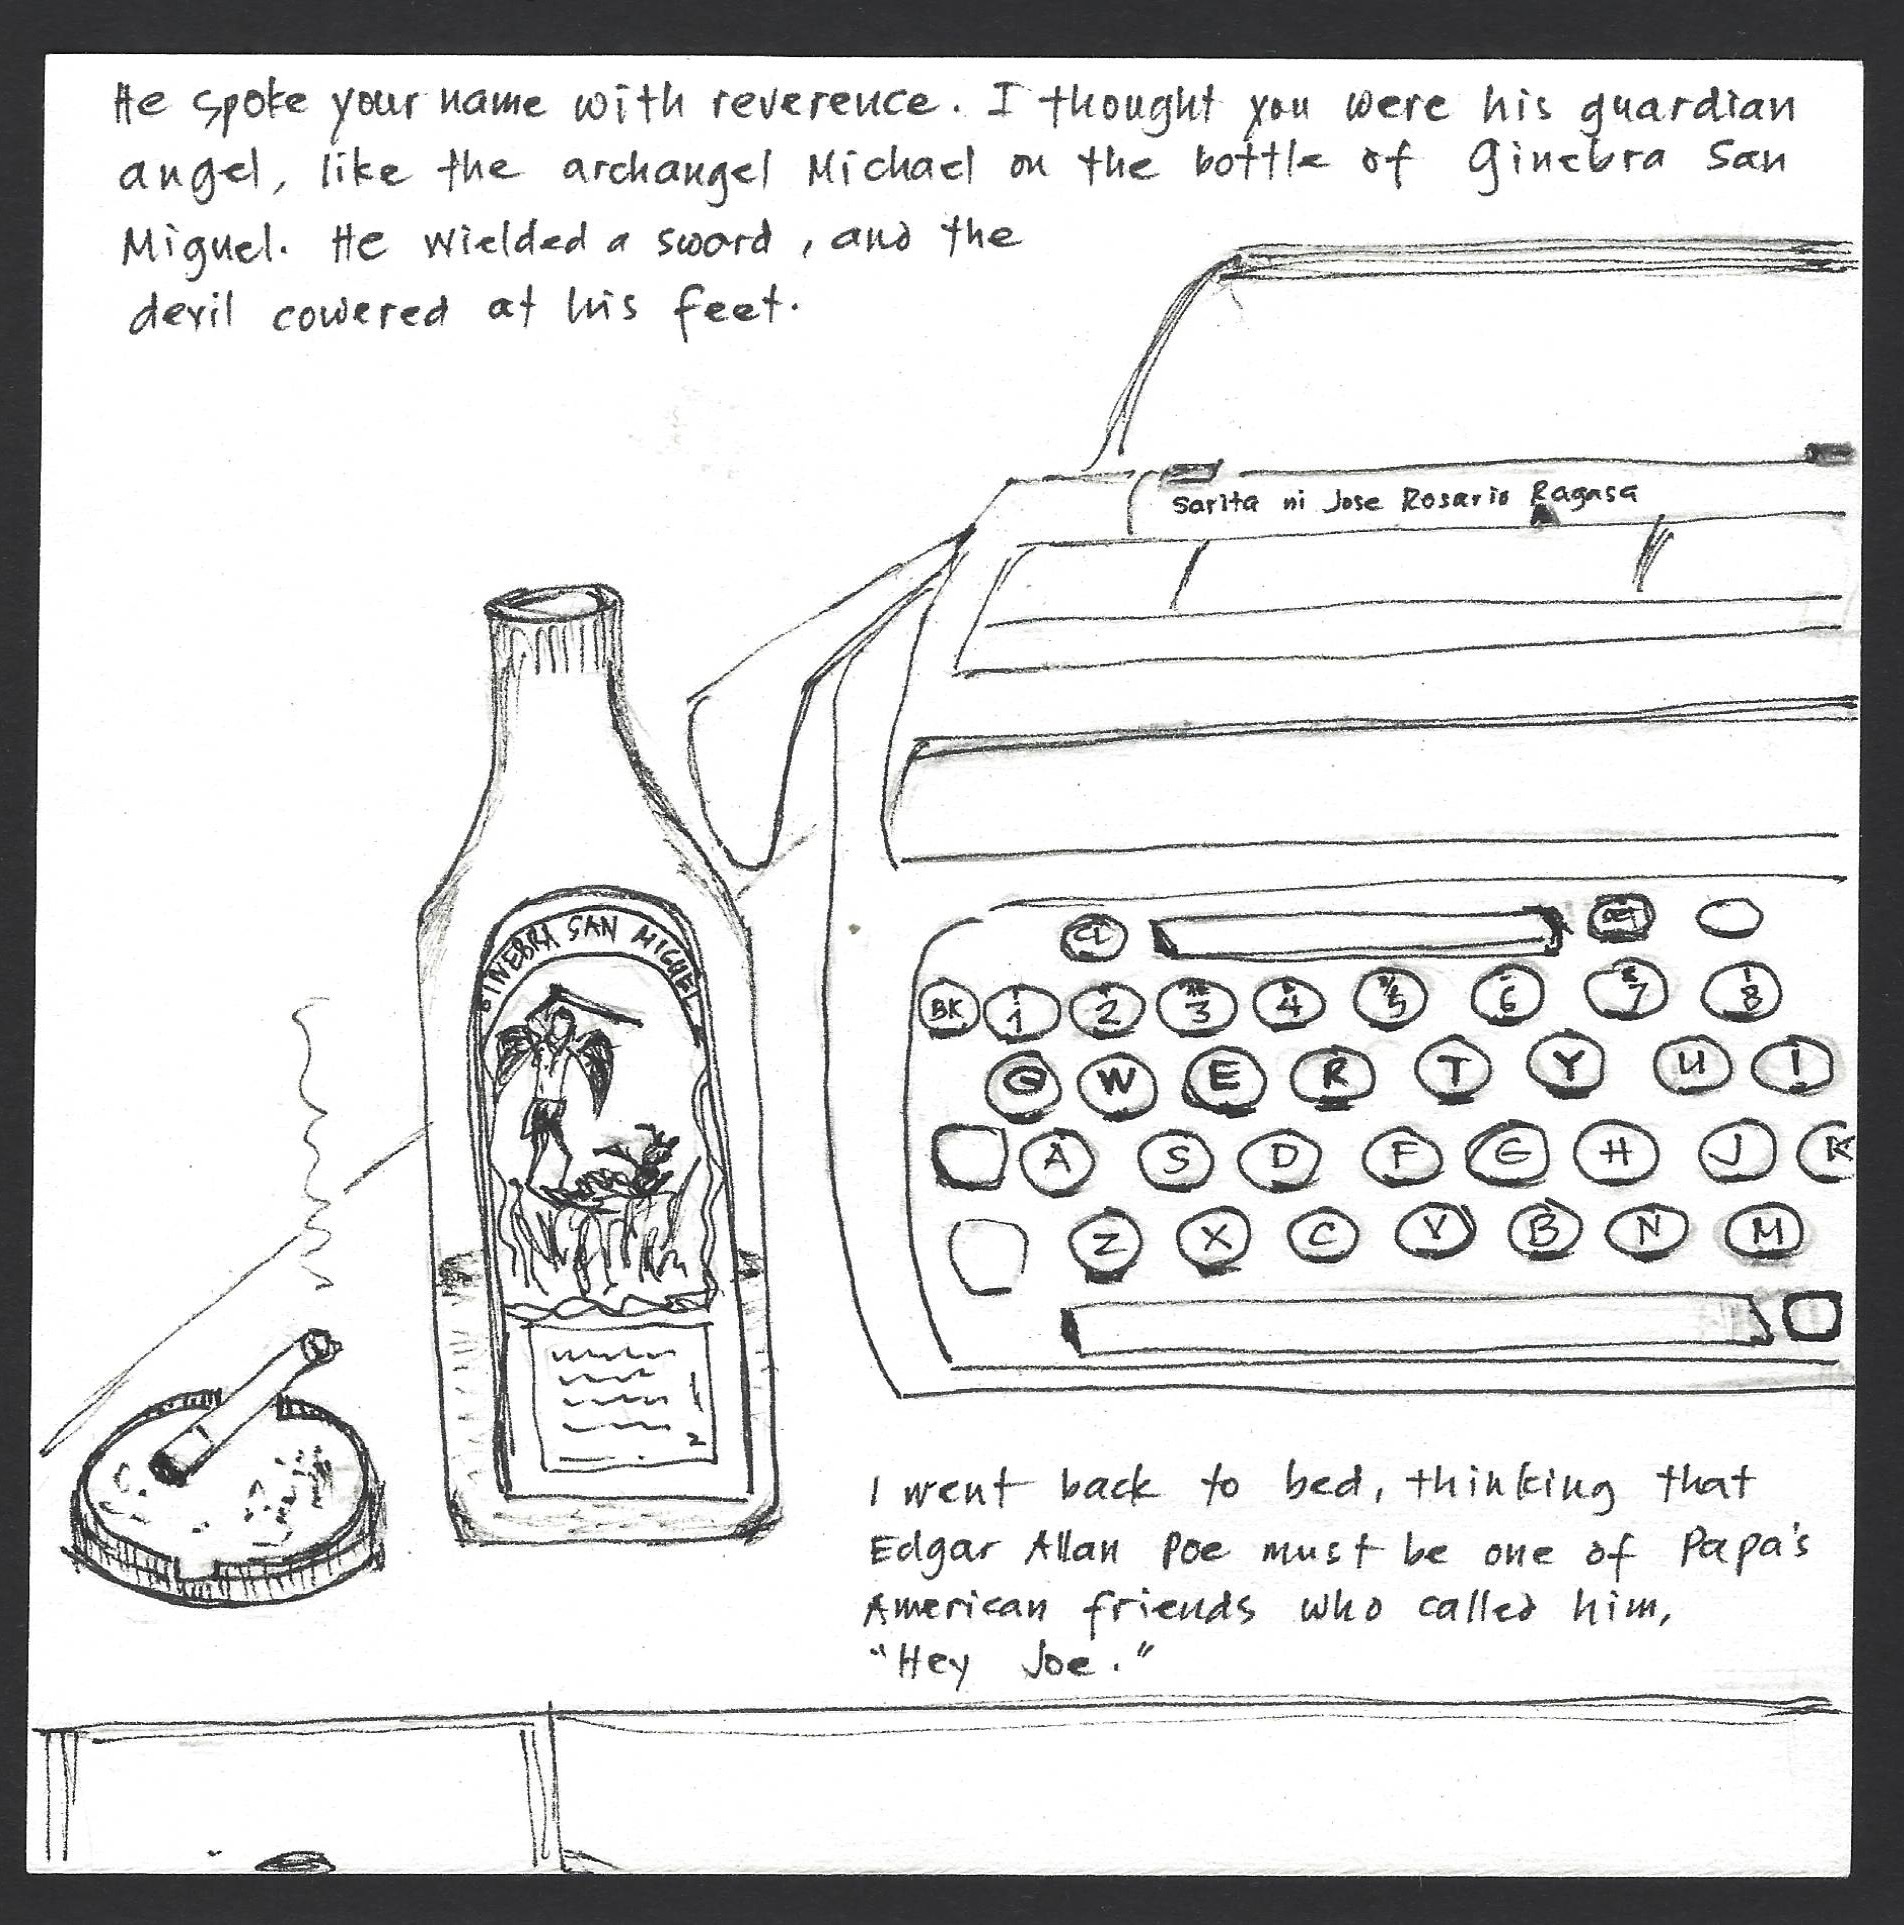 He spoke your name with reverence. I thought you were his guardian
angel, like the archangel Michael on the bottle of Ginebra San
Miguel. He wielded a sword, and the
devil cowered at his feet.
Sarita ni Jose Rosario Ragasa
GINEBRA SAN MIGUEL
CL
BK 1 2 3 4 5 6 7 8
Q W E R T Y U I
A S D F G H J K
Z X C V B N M
I went back to bed, thinking that
Edgar Allan Poe must be one of Papa's
American friends who called him,
"Hey Joe."